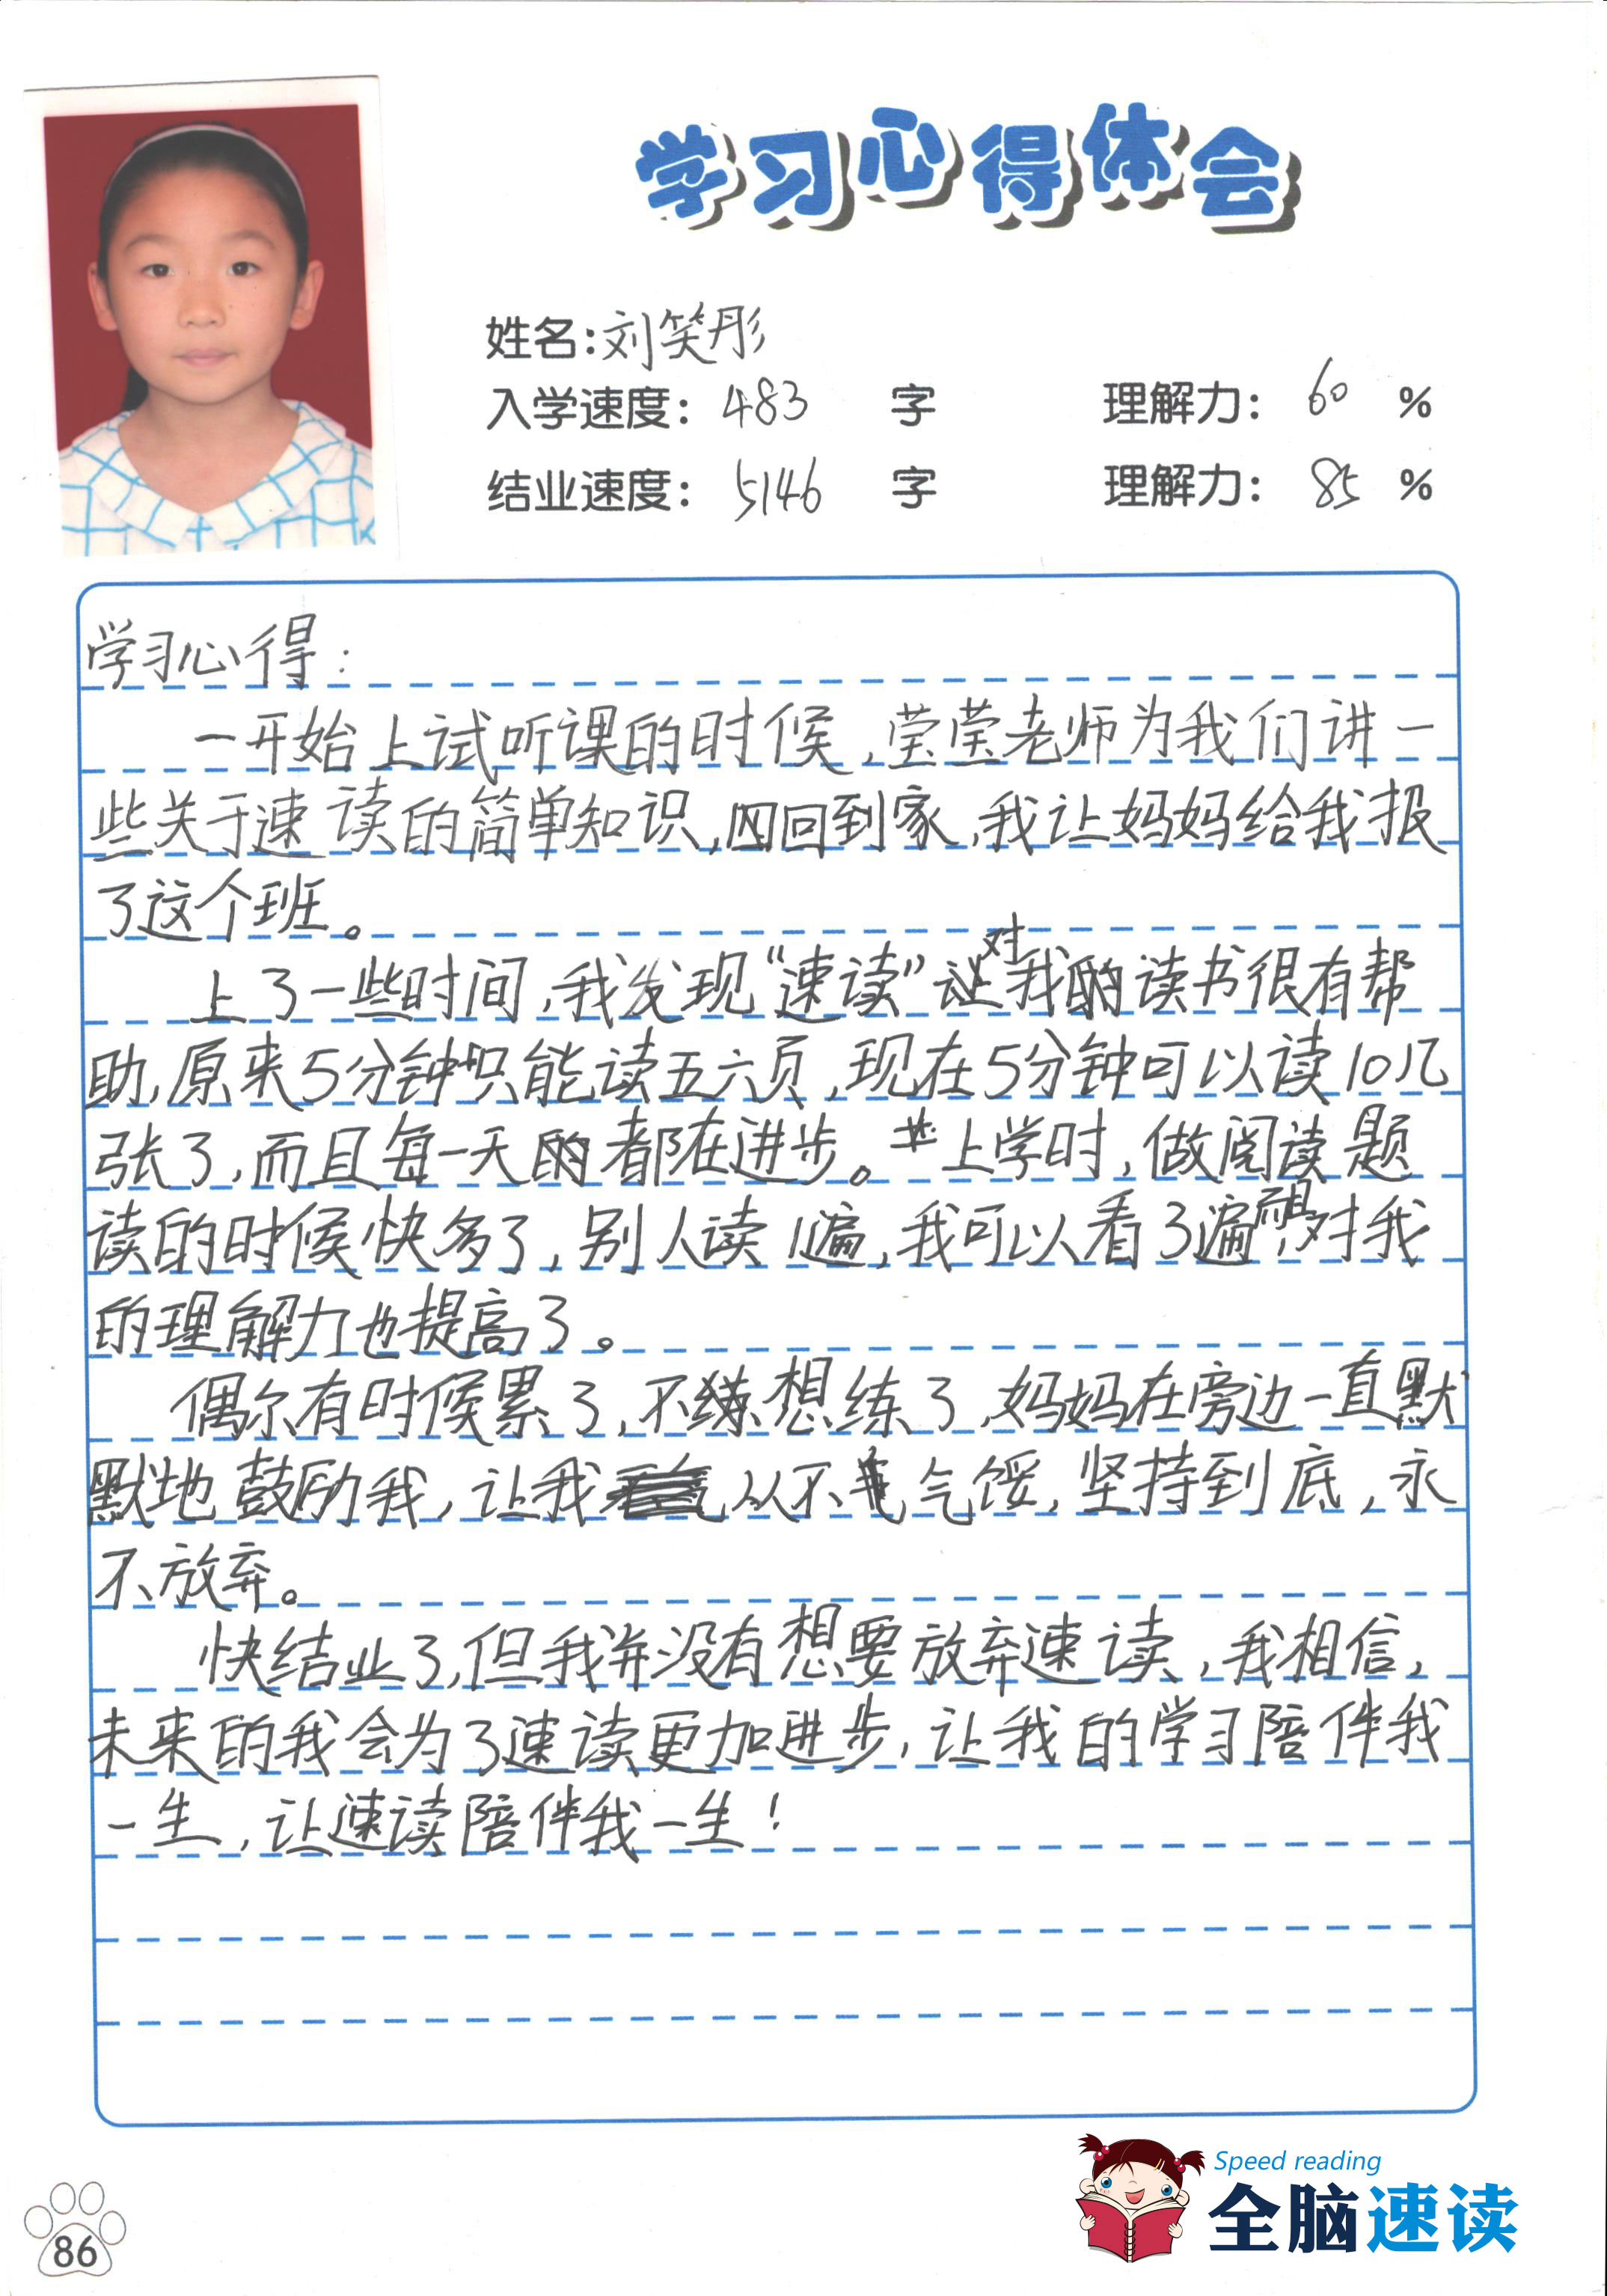 学习心得体会
姓名：刘笑彤
入学速度： 483 字 理解力： 60 %
结业速度： 5146 字 理解力： 85 %
学习心得：
一开始上试听课的时候，莹莹老师为我们讲一
些关于速读的简单知识，回到家，我让妈妈给我报
了这个班。
上了一些时间，我发现“速读”对我读书很有帮
助，原来5分钟只能读五六页，现在5分钟可以读10几
张了，而且每一天都在进步。上学时，做阅读题
读的时候快多了，别人读1遍，我可以看3遍，而且对我
的理解力也提高了。
偶尔有时候累了，不想练了，妈妈在旁边一直默
默地鼓励我，让我从不气馁，坚持到底，永
不放弃。
快结业了，但我并没有想要放弃速读，我相信，
未来的我会为了速读更加进步，让我的学习陪伴我
一生，让速读陪伴我一生！
Speed reading
全脑速读
86